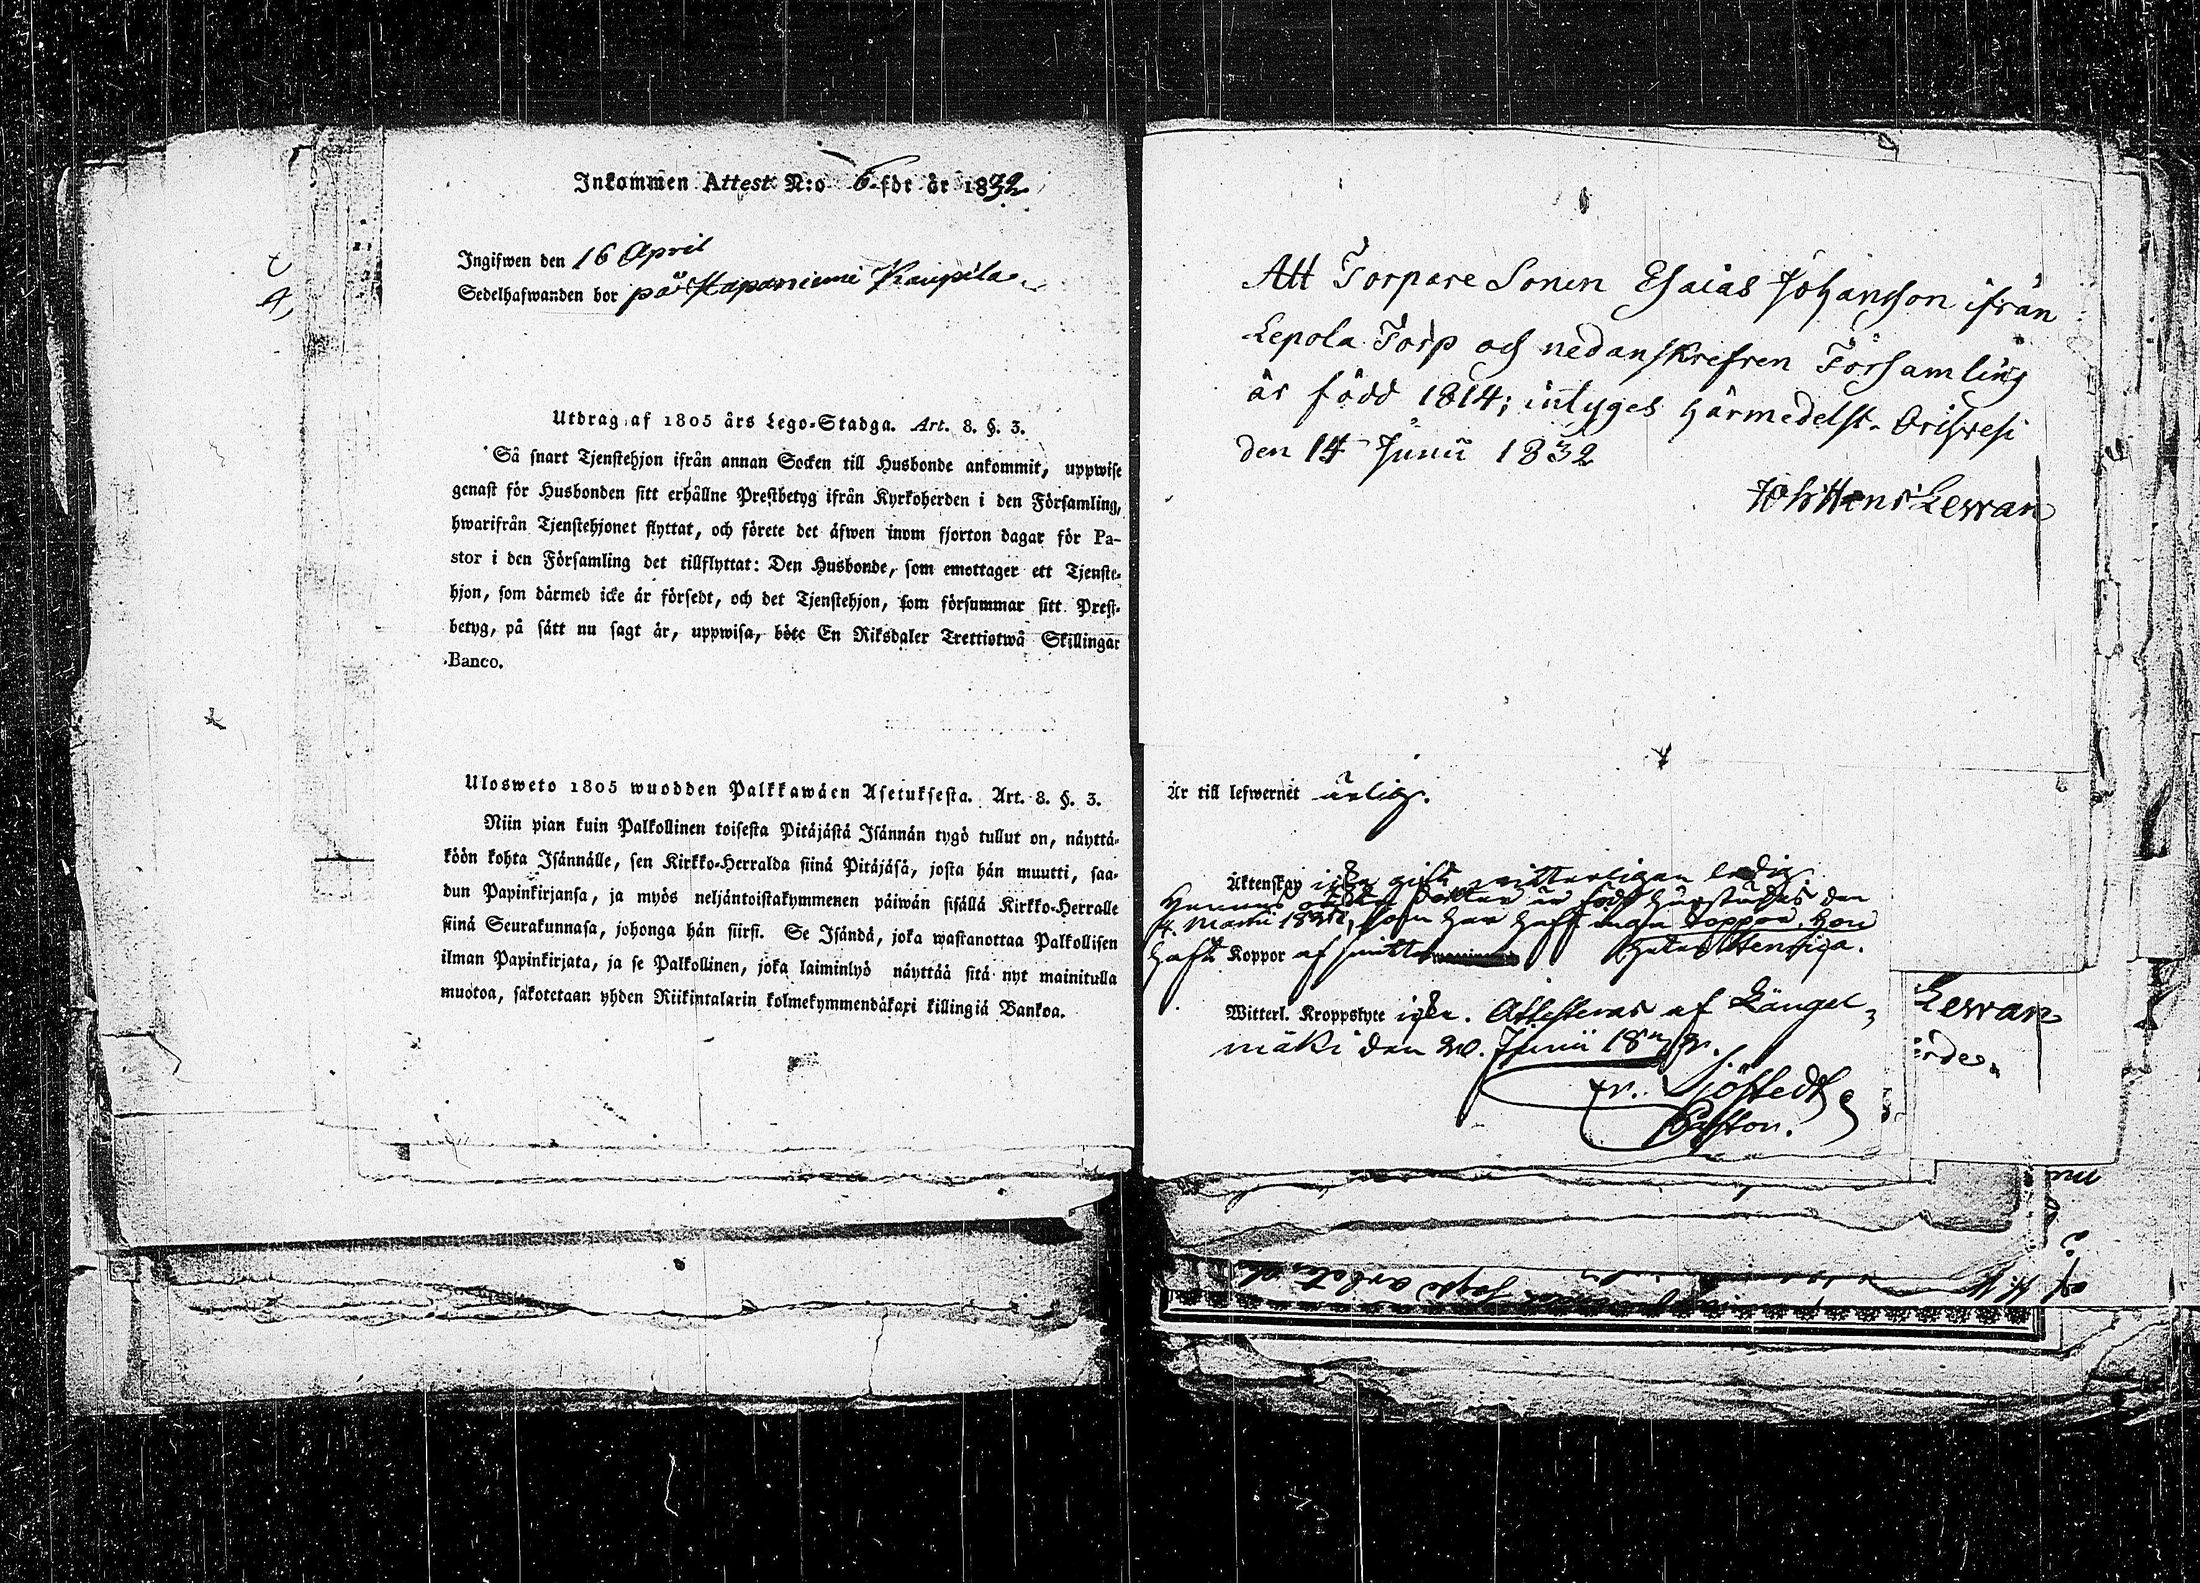 Inkommen Attest N:o 6 för år 1832
Ingifwen den 16 April
Sedelhafwanden bor på Kapaniemi Kaupila
Utdrag af 1805 års Lego-Stadga. Art. 8. §. 3.
Så snart Tjenstehjon ifrån annan Socken till Husbonde ankommit, uppwise
genast för Husbonden sitt erhållne Prestbetyg ifrån Kyrkoherden i den Församling,
hwarifrån Tjenstehjonet flyttat, och förete det äfwen inom fjorton dagar för Pa-
stor i den Församling det tillflyttat: Den Husbonde, som emottager ett Tjenste-
hjon, som därmed icke är försedt, och det Tjenstehjon, som försummar sitt Prest-
betyg, på sätt nu sagt är, uppwisa, böte En Riksdaler Trettiotwå Skillingar
Banco.
Ulosweto 1805 wuodden Palkkawäen Asetuksesta. Art. 8. §. 3.
Niin pian kuin Palkollinen toisesta Pitäjästä Isännän tygö tullut on, näyttä-
köön kohta Isännälle, sen Kirkko-Herralda siinä Pitäjäsä, josta hän muutti, saa-
dun Papinkirjansa, ja myös neljäntoistakymmenen päiwän sisällä Kirkko-Herralle
siinä Seurakunnasa, johonga hän siirsi. Se Isändä, joka wastanottaa Palkollisen
ilman Papinkirjata, ja se Palkollinen, joka laiminlyö näyttää sitä nyt mainitulla
muotoa, sakotetaan yhden Riikintalarin kolmekymmendäkaxi killingiä Bankoa.
Att Torpare Sonen Esaias Johansson ifrån
Lepola Torp och nedanskrefven Församling
är född 1814; intyges härmedelst. Orihvesi
den 14 Junii 1832
Joh Henr Lewan
Är till lefwernet ärlig.
Äktenskap icke gift witterligen ledig.
dotter är född härstädes den
som har haft Koppor. Hon
haft Koppor af Henrica.
Witterl. Kroppslyte icke. Attesteras af Längel-
mäki den 20. Junii 1832.
Sjöstedt
Pastor.
Lewan